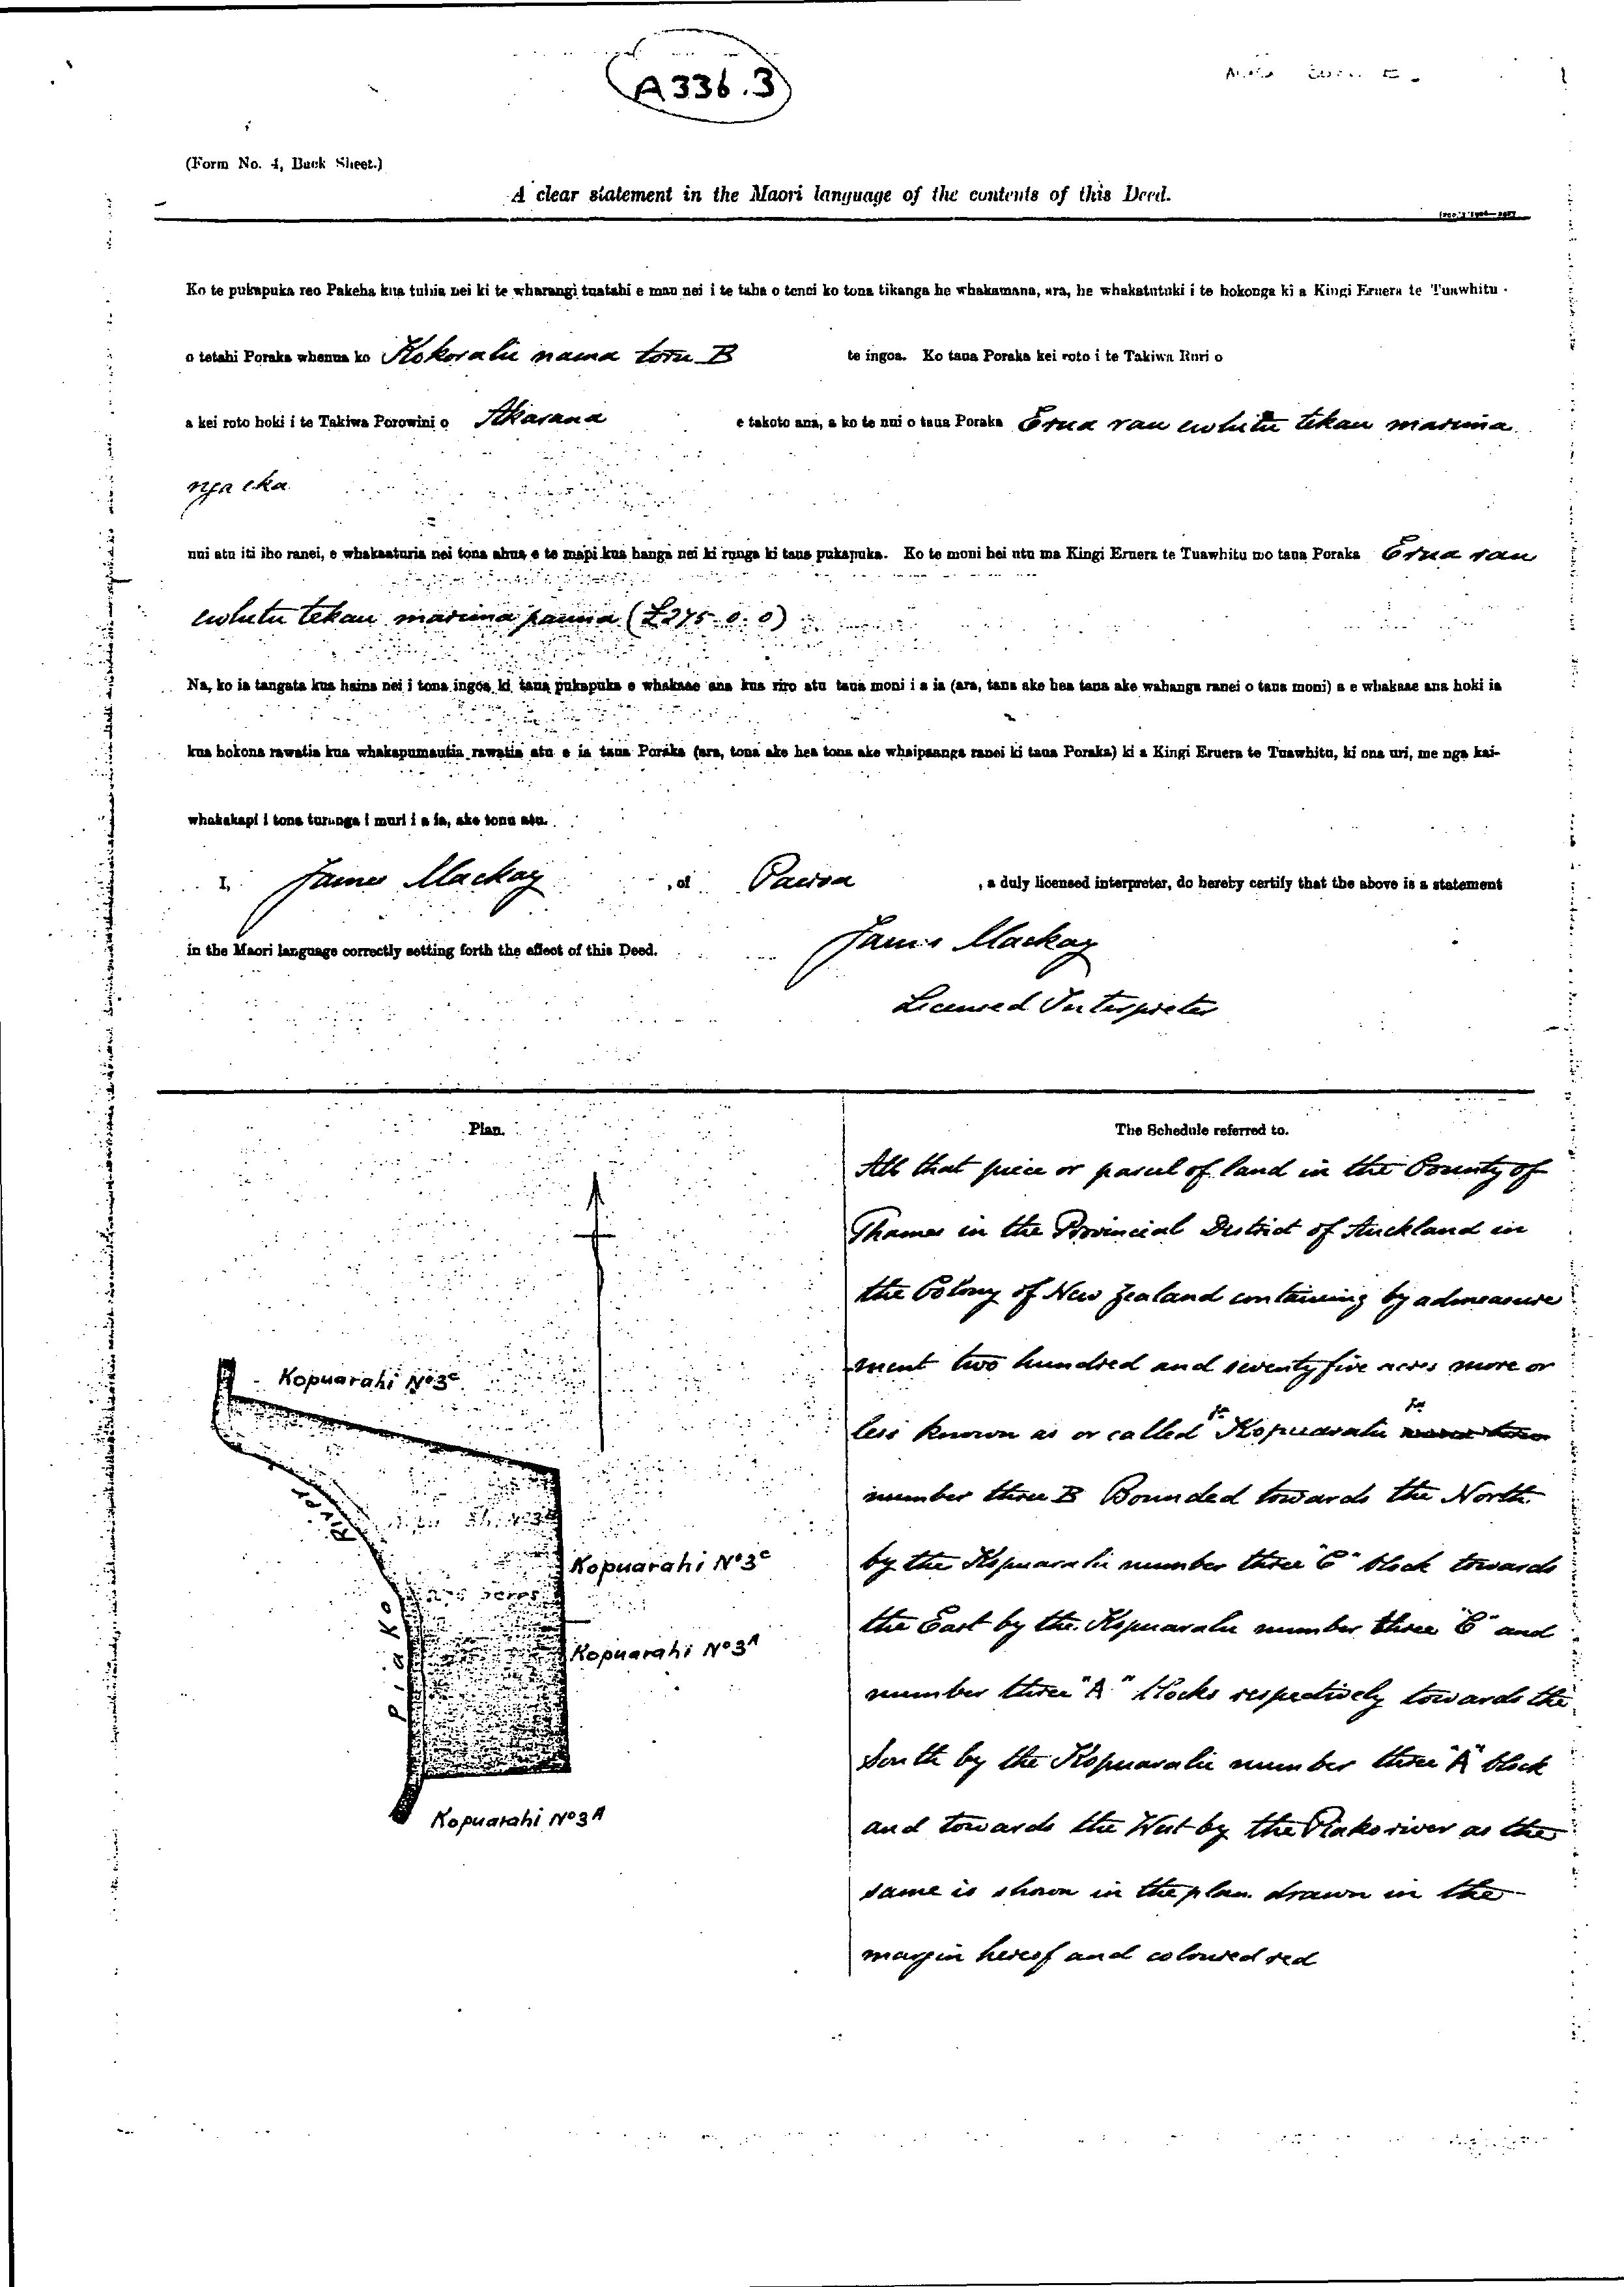 A336.3
(Form No. 4, Back Sheet.)
A clear statement in the Maori language of the contents of this Deed.
Ko te pukapuka reo Pakeha kua tuhia nei ki te wharangi tuatahi e mau nei i te taha o tenei ko tona tikanga he whakamana, ara, he whakatutuki i te hokonga ki a Kingi Eruera te Tuawhitu
o tetahi Poraka whenua ko Kokorahi nama toru B te ingoa. Ko taua Poraka kei roto i te Takiwa Ruri o
a kei roto hoki i te Takiwa Porowini o Akarana e takoto ana, a ko te nui o taua Poraka Erua rau ewhitu tekau marima
nga eka
nui atu iti iho ranei, e whakaaturia nei tona ahua e te mapi kua hanga nei ki runga ki taua pukapuka. Ko te moni hei utu ma Kingi Eruera te Tuawhitu mo taua Poraka Erua rau
ewhitu tekau marima pauna (£275.0.0)
Na, ko ia tangata kua haina nei i tona ingoa ki taua pukapuka e whakaae ana kua riro atu taua moni i a ia (ara, tana ake hea tana ake wahanga ranei o taua moni) a e whakaae ana hoki ia
kua hokona rawatia kua whakapumautia rawatia atu e ia taua Poraka (ara, tona ake hea tona ake whaipaanga ranei ki taua Poraka) ki a Kingi Eruera te Tuawhitu, ki ona uri, me nga kai-
whakakapi i tona turanga i muri i a ia, ake tonu atu.
I, James Mackay, of Paeroa, a duly licensed interpreter, do hereby certify that the above is a statement
in the Maori language correctly setting forth the effect of this Deed. James Mackay
Licensed Interpreter
Plan.
Kopuarahi No 3C
River
Kopuarahi No 3C
acres
Kopuarahi No 3A
Piako
Kopuarahi No 3A
The Schedule referred to.
All that piece or parcel of land in the County of
Thames in the Provincial District of Auckland in
the Colony of New Zealand containing by admeasure
ment two hundred and seventy five acres more or
less known as or called Kopuarahi
number three B Bounded towards the North
by the Kopuarahi number three "C" block towards
the East by the Kopuarahi number three "C" and
number three "A" blocks respectively towards the
South by the Kopuarahi number three "A" block
and towards the West by the Piako river as the
same is shown in the plan drawn in the
margin hereof and coloured red